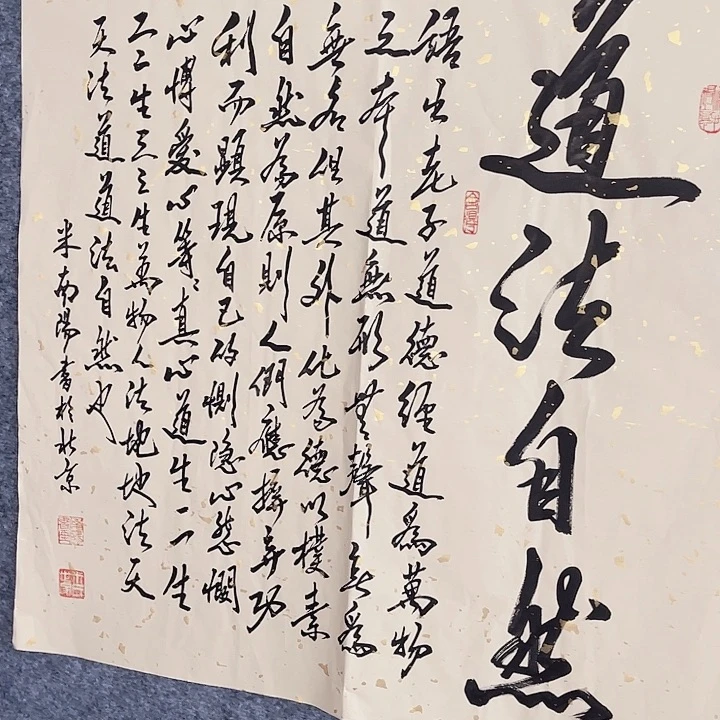 道法自然
語出老子道德經道為萬物
之本道無形無聲無為
無名但其外化為德以樸素
自然為原則人們應摒弃功
利而顯現自己的惻隱心悲憫
心博愛心等等真心道生一一生
二二生三三生萬物人法地地法天
天法道道法自然也
米南陽書於北京